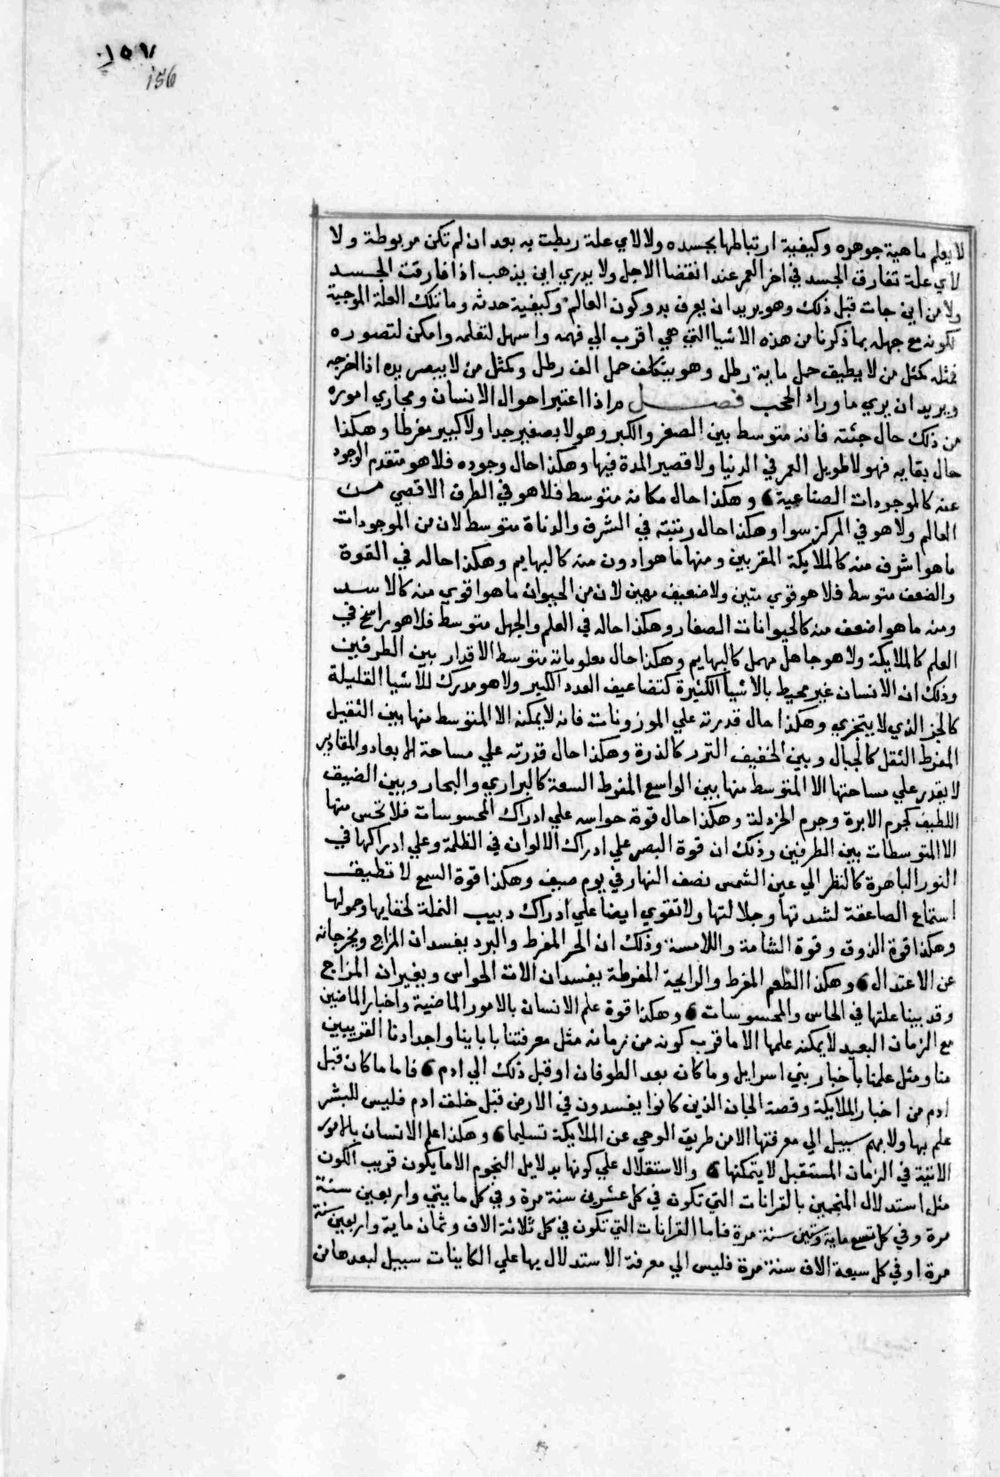 ١٥٧
156
لا يعلم ماهية جوهره وكيفية ارتباطها بجسده ولا لاي علة ربطت به بعد ان لم تكن مربوطة ولا
لاي علة تفارق الجسد في اخر العمر عند انقضا الاجل ولا يدري اين يذهب اذا فارقت الجسد
ولا من اين جات قبل ذلك وهو يريد ان يعرف بدو كون العالم وكيفية حدثه وما تلك العلة الموجبة
لكونه مع جهله بما ذكرنا من هذه الاشيا التي هي اقرب الي فهمه واسهل لتعلمه وامكن لتصوره
فمثله كمثل من لا يطيق حمل ماية رطل وهو يتكلف حمل الف رطل وكمثل من لا يبصر يده اذا اخرجه
ويريد ان يري ما وراء الحجب فصل مر اذا اعتبر احوال الانسان ومجاري اموره
من ذلك حال جثته فانه متوسط بين الصغر والكبر وهو لا بصغير جدا ولا كبير مفرطا وهكذا
حال بقايه فهو لا طويل العمر في الدنيا ولا قصير المدة فيها وهكذا حال وجوده فلا هو متقدم الوجود
عنه كالموجودات الصناعية 6 وهكذا حال مكانه متوسط فلا هو في الطرف الاقصي من
العالم ولا هو في المركز سوا وهكذا حال رتبته في الشرف والدناة متوسط لان من الموجودات
ما هو اشرف منه كالملايكة المقربين ومنها ما هو ادون منه كالبهايم وهكذا حاله في القوة
والضعف متوسط فلا هو قوي متين ولا ضعيف مهين لان من الحيوان ما هو اقوي منه كالاسد
ومنه ما هو اضعف منه كالحيوانات الصغار وهكذا حاله في العلم والجهل متوسط فلا هو راسخ في
العلم كالملايكة ولا هو جاهل مهمل كالبهايم وهكذا حال معلوماته متوسط الاقدار بين الطرفين
وذلك ان الانسان غير محيط بالاشيا الكثيرة كتضاعيف العدد الكبير ولا هو مدرك للاشيا القليلة
كالجز الذي لا يتجزي وهكذا حال قدرته علي الموزونات فانه لا يمكنه الا المتوسط منها بين الثقيل
المفرط الثقل كالجبال وبين الخفيف النزر كالذرة وهكذا حال قدرته علي مساحة الابعاد والمقادير
لا يقدر علي مساحتها الا المتوسط منها بين الواسع المفرط السعة كالبراري والبحار وبين الضيق
اللطيف كجرم الابرة وجرم الخردلة وهكذا حال قوة حواسه علي ادراك المحسوسات فلا تحس منها
الا المتوسطات بين الطرفين وذلك ان قوة البصر علي ادراك الالوان في الظلمة وعلي ادراكها في
النور الباهرة كالنظر الي عين الشمس نصف النهار في يوم صيف وهكذا قوة السمع لا تطيق
استماع الصاعقة لشدتها وجلالتها ولا تقوي ايضا علي ادراك دبيب النملة لخفايها وخمولها
وهكذا قوة الذوق وقوة الشامة واللامسة وذلك ان الحر المفرط والبرد يفسدان المزاج ويخرجانه
عن الاعتدال 6 وهكذا الطعم المفرط والرايحة المفرطة يفسدان الات الحواس ويغيران المزاج
وقد بينا علتها في الحاس والمحسوسات 6 وهكذا قوة علم الانسان بالامور الماضية واخبار الماضين
مع الزمان البعيد لا يمكنه علمها الا ما قرب كونه من زمانه مثل معرفتنا باباينا واجدادنا القريبين
منا ومثل علمنا باخبار بني اسرايل وما كان بعد الطوفان او قبل ذلك الي ادم 6 فاما ما كان قبل
ادم من اخبار الملايكة وقصة الجان الذين كانوا يفسدون في الارض قبل خلق ادم فليس للبشر
علم بها ولا لهم سبيل الي معرفتها الا من طريق الوحي عن الملايكة تسليما 6 وهكذا علم الانسان بالامور
الاتية في الزمان المستقبل لا يتمكنها 6 والاستقلال علي كونها بدلايل النجوم الا ما يكون قريب الكون
مثل استدلال المنجمين بالقرانات التي تكون في كل عشرين سنة مرة وفي كل مايتي واربعين سنة
مرة وفي كل تسع ماية وستين سنة مرة فاما القرانات التي تكون في كل ثلاثة الاف وثمان ماية واربعين سنة
مرة او في كل سبعة الاف سنة مرة فليس الي معرفة الاستدلال بها علي الكاينات سبيل لبعدها من